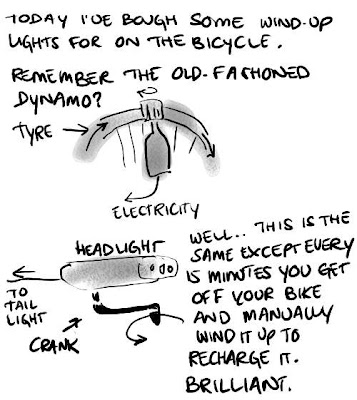 TODAY I'VE BOUGH SOME WIND-UP
LIGHTS FOR ON THE BICYCLE.
REMEMBER THE OLD-FASHIONED
DYNAMO?
TYRE
ELECTRICITY
HEADLIGHT
TO
TAIL
LIGHT
CRANK
WELL.. THIS IS THE
SAME EXCEPT EVERY
15 MINUTES YOU GET
OFF YOUR BIKE
AND MANUALLY
WIND IT UP TO
RECHARGE IT.
BRILLIANT.